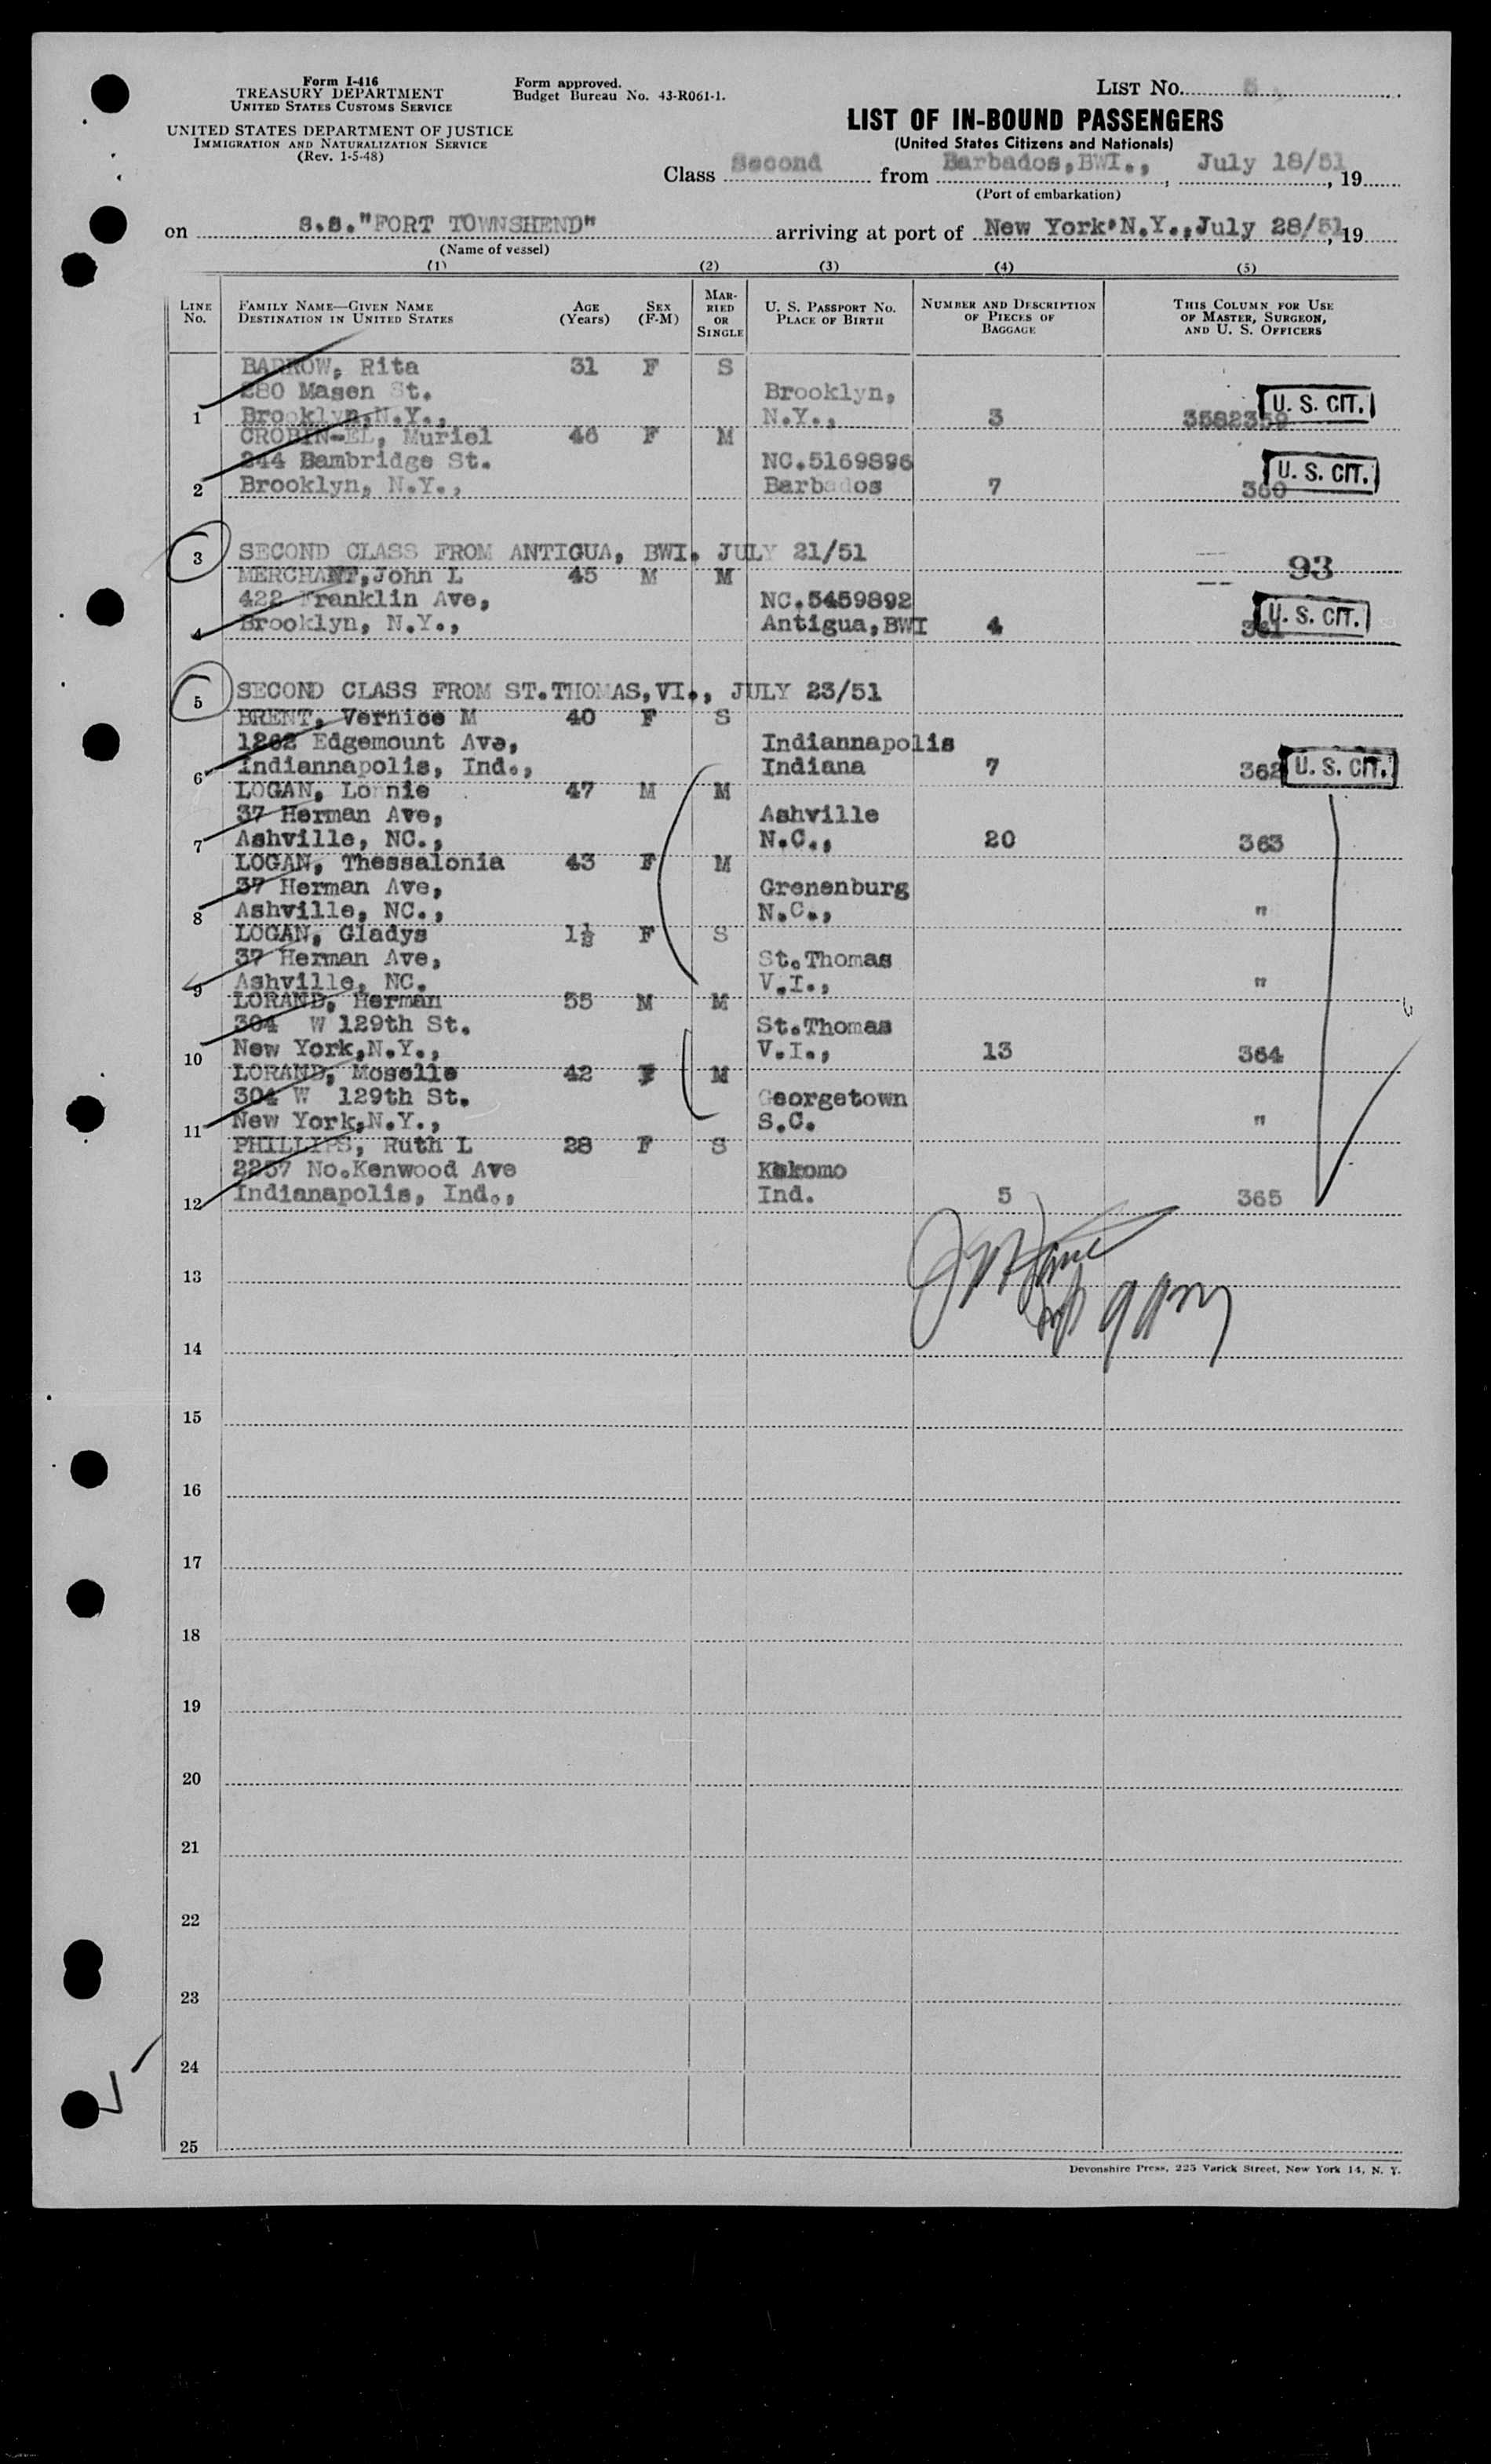 Form I-416
TREASURY DEPARTMENT
UNITED STATES CUSTOMS SERVICE
UNITED STATES DEPARTMENT OF JUSTICE
IMMIGRATION AND NATURALIZATION SERVICE
(Rev. 1-5-48)
Form approved.
Budget Bureau No. 43-R061-1.
LIST NO. 5
LIST OF IN-BOUND PASSENGERS
(United States Citizens and Nationals)
Class Second from Barbados,BWI., July 18/51, 19
(Port of embarkation)
on S.S."FORT TOWNSHEND" arriving at port of New York,N.Y.,July 28/51, 19
(Name of vessel)
(1) (2) (3) (4) (5)
LINE NO. FAMILY NAME—GIVEN NAME DESTINATION IN UNITED STATES AGE (Years) SEX (F-M) MARRIED OR SINGLE U. S. PASSPORT NO. PLACE OF BIRTH NUMBER AND DESCRIPTION OF PIECES OF BAGGAGE THIS COLUMN FOR USE OF MASTER, SURGEON, AND U. S. OFFICERS
BARROW, Rita 31 F S
280 Mason St. Brooklyn, U. S. CIT.
1 Brooklyn,N.Y., N.Y., 3 3582359
CROBIN-EL, Muriel 46 F M
244 Bambridge St. NC.5169896 U. S. CIT.
2 Brooklyn, N.Y., Barbados 7 360
3 SECOND CLASS FROM ANTIGUA, BWI. JULY 21/51
93
MERCHANT,John L 45 M M
422 Franklin Ave, NC.5459892 U. S. CIT.
4 Brooklyn, N.Y., Antigua,BWI 4 361
5 SECOND CLASS FROM ST.THOMAS,VI., JULY 23/51
BRENT, Vernice M 40 F S
1262 Edgemount Ave, Indiannapolis
6 Indiannapolis, Ind., Indiana 7 362 U. S. CIT.
LOGAN, Lonnie 47 M M
37 Herman Ave, Ashville
7 Ashville, NC., N.C., 20 363
LOGAN, Thessalonia 43 F M
37 Herman Ave, Grenenburg
8 Ashville, NC., N.C., "
LOGAN, Gladys 1½ F S
37 Herman Ave, St.Thomas
9 Ashville, NC. V.I., "
LORAND, Herman 55 M M
304 W 129th St. St.Thomas
10 New York,N.Y., V.I., 13 364
LORAND, Moselle 42 F M
304 W 129th St. Georgetown
11 New York,N.Y., S.C. "
PHILLIPS, Ruth L 28 F S
2257 No.Kenwood Ave Kokomo
12 Indianapolis, Ind., Ind. 5 365
13
14
15
16
17
18
19
20
21
22
23
24
25
Devonshire Press, 225 Varick Street, New York 14, N. Y.